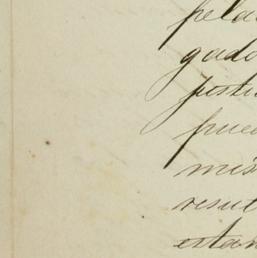 pela
gado
posti
pued
mis
resul
estan